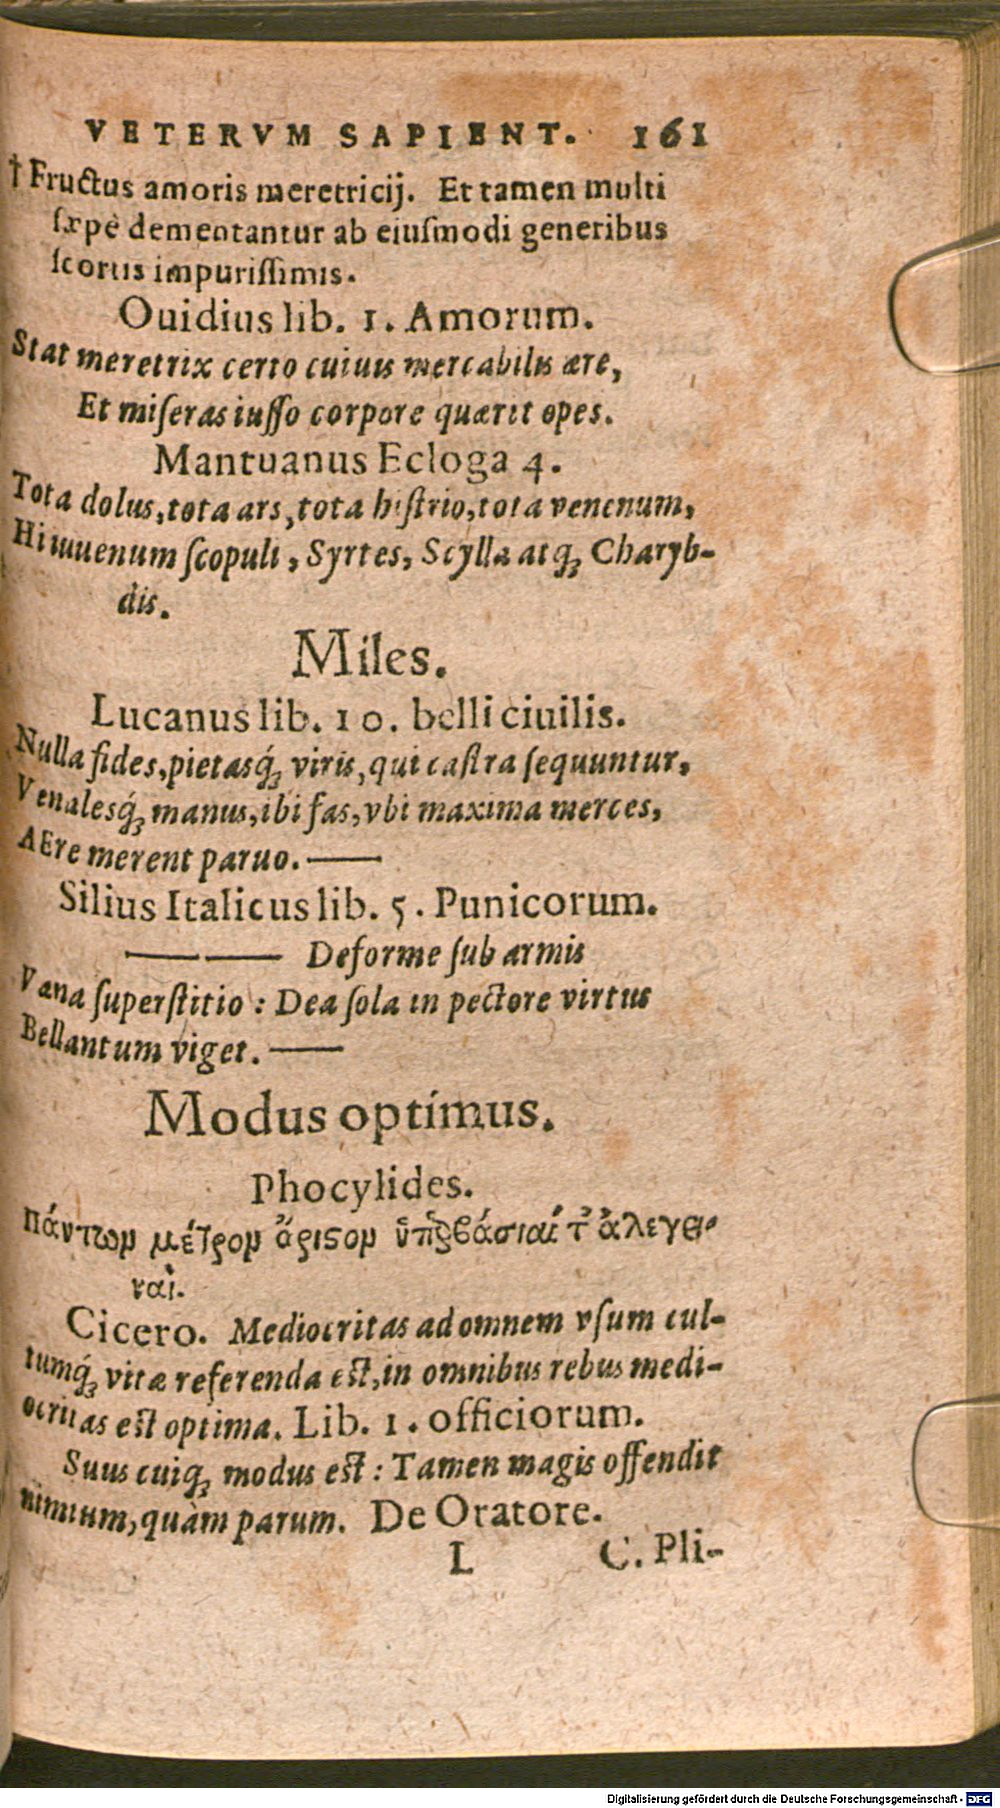 VETERVM SAPIENT. 161
† Fructus amoris meretricij. Et tamen multi
ſæpè dementantur ab eiuſmodi generibus
ſcortis impuriſſimis.
Ouidius lib. 1. Amorum.
Stat meretrix certo cuiuis mercabilis ære,
Et miſeras iuſſo corpore quærit opes.
Mantuanus Ecloga 4.
Tota dolus, tota ars, tota hiſtrio, tota venenum,
Hi iuuenum ſcopuli, Syrtes, Scylla atq́; Charyb-
dis.
Miles.
Lucanus lib. 10. belli ciuilis.
Nulla fides, pietasq́; viris, qui caſtra ſequuntur,
Venalesq́; manus, ibi fas, vbi maxima merces,
AEre merent paruo. ——
Silius Italicus lib. 5. Punicorum.
—— —— Deforme ſub armis
Vana ſuperſtitio : Dea ſola in pectore virtus
Bellantum viget. ——
Modus optimus.
Phocylides.
πάντωμ μέτρομ ἄριϛομ ὑπερβάσιαι τ̓ ἀλεγει-
ναί.
Cicero. Mediocritas ad omnem vſum cul-
tumq́; vitæ referenda eſt, in omnibus rebus medi-
ocritas eſt optima. Lib. 1. officiorum.
Suus cuiq́; modus eſt : Tamen magis offendit
nimium, quàm parum. De Oratore.
L C. Pli-
Digitalisierung gefördert durch die Deutsche Forschungsgemeinschaft - DFG